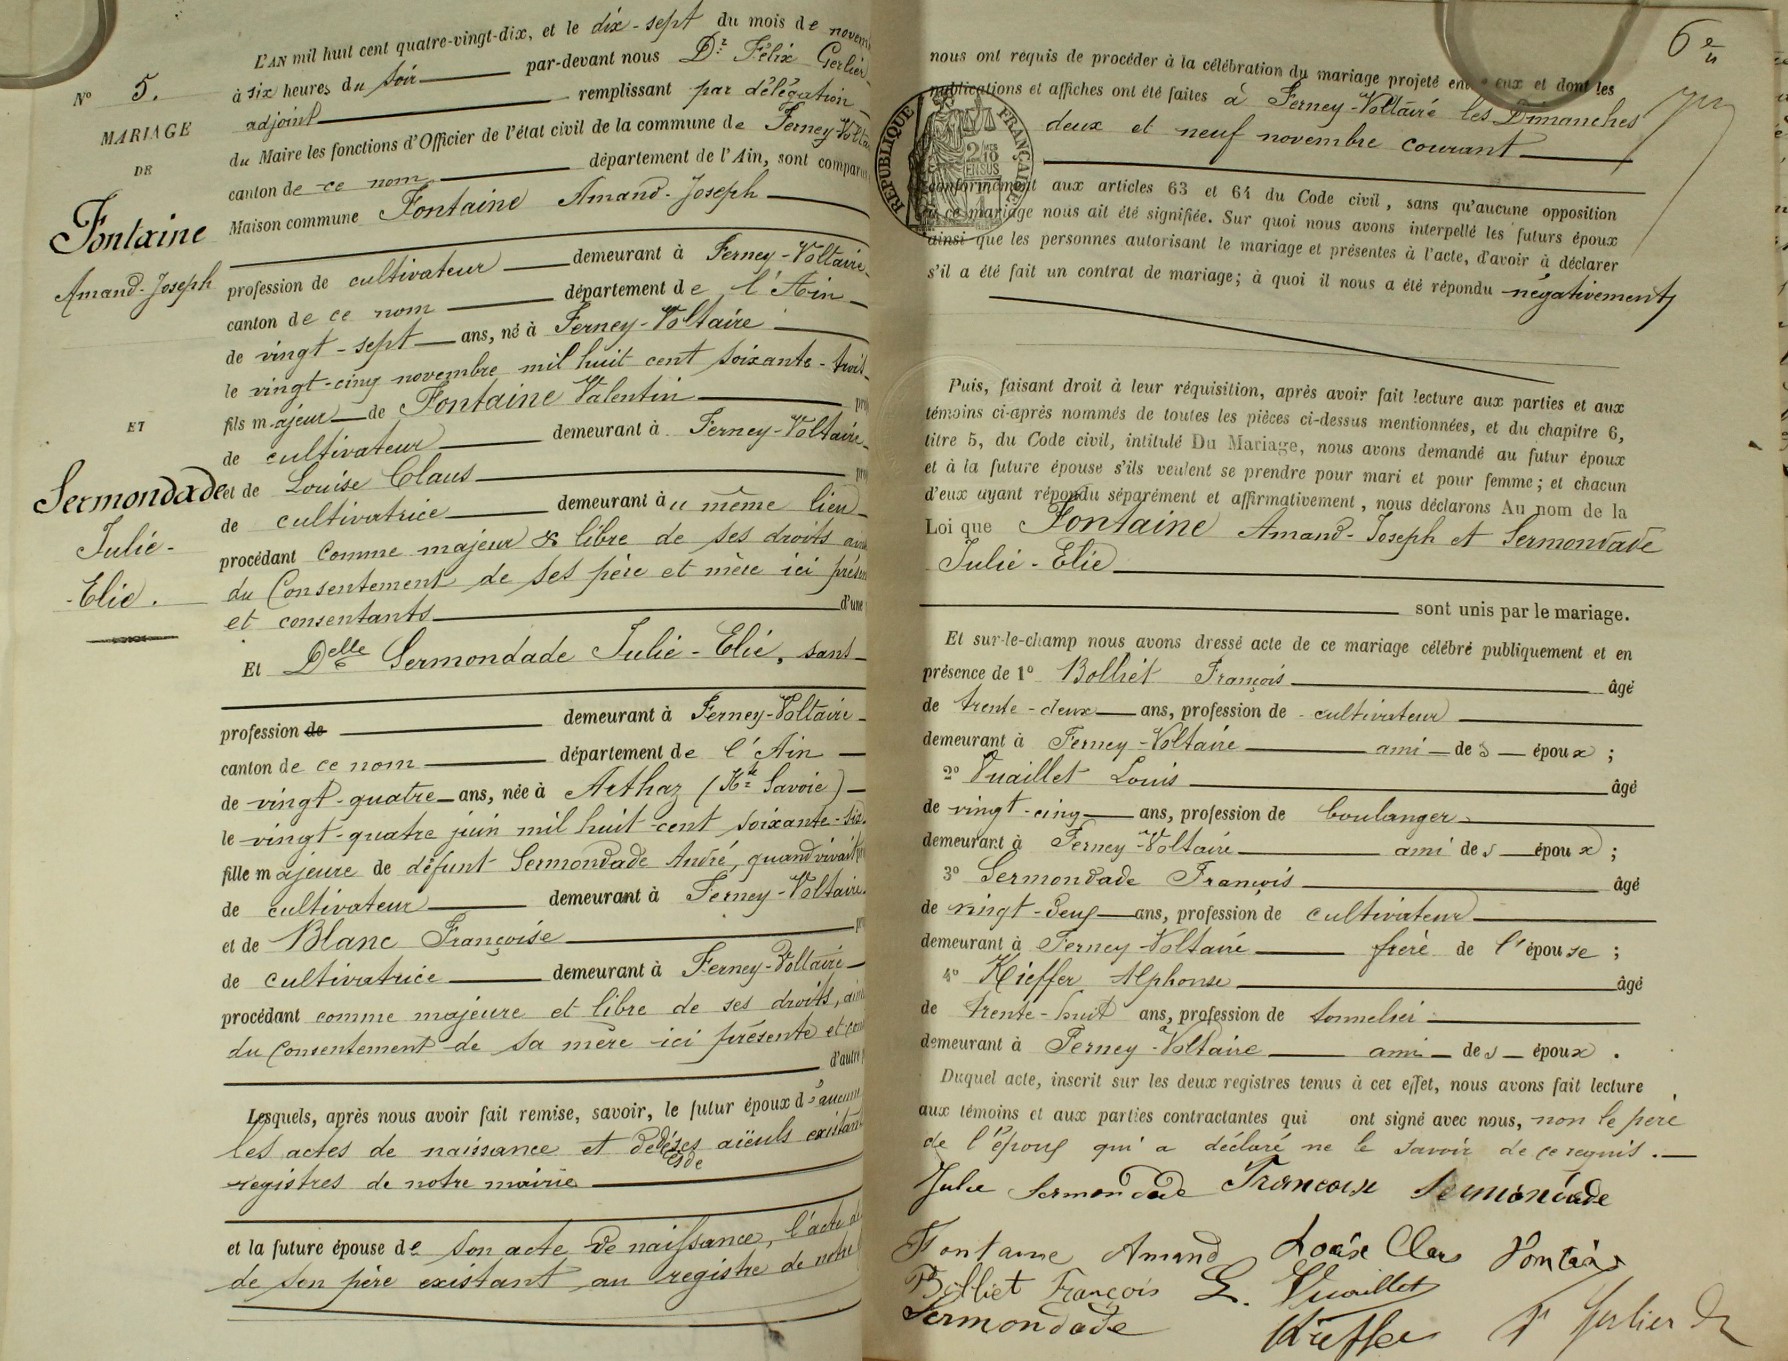 L'AN mil huit cent quatre-vingt-dix, et le dix-sept du mois de novem
à six heures du soir par-devant nous Dr Félix Gerlier
adjoint remplissant par délégation
du Maire les fonctions d'Officier de l'état civil de la commune de Ferney-Volta
canton de ce nom département de l'Ain, sont comparu
Maison commune Fontaine Amand-Joseph
profession de cultivateur demeurant à Ferney-Voltaire
canton de ce nom département de l'Ain
de vingt-sept ans, né à Ferney-Voltaire
le vingt-cinq novembre mil huit cent soixante-trois
fils majeur de Fontaine Valentin pro
de cultivateur demeurant à Ferney-Voltaire
et de Louise Claus pro
de cultivatrice demeurant à u même lieu
procédant comme majeur & libre de ses droits
du Consentement de ses père et mère ici prése
et consentants d'une
Et Delle Sermondade Julie-Elie, sans
profession de demeurant à Ferney-Voltaire
canton de ce nom département de l'Ain
de vingt-quatre ans, née à Arthaz (Hte Savoie)
le vingt-quatre juin mil huit-cent soixante-six
fille majeure de défunt Sermondade André, quand vivait
de cultivateur demeurant à Ferney-Voltaire
et de Blanc Françoise pro
de cultivatrice demeurant à Ferney-Voltaire
procédant comme majeure et libre de ses droits,
du Consentement de sa mère ici présente et con
d'autre
Lesquels, après nous avoir fait remise, savoir, le futur époux d'aucune
les actes de naissance et aïeuls existant
registres de notre mairie
et la future épouse de son acte de naissance, l'acte de
de son père existant au registre de notre
No 5.
MARIAGE
DE
Fontaine
Amand-Joseph
ET
Sermondade
Julie-
-Elie.
6e
nous ont requis de procéder à la célébration du mariage projeté entre eux et dont les
publications et affiches ont été faites à Ferney-Voltaire les Dimanches
deux et neuf novembre courant
RÉPUBLIQUE FRANÇAISE
2/10
EN SUS
conformément aux articles 63 et 64 du Code civil, sans qu'aucune opposition
à ce mariage nous ait été signifiée. Sur quoi nous avons interpellé les futurs époux
ainsi que les personnes autorisant le mariage et présentes à l'acte, d'avoir à déclarer
s'il a été fait un contrat de mariage; à quoi il nous a été répondu négativement
Puis, faisant droit à leur réquisition, après avoir fait lecture aux parties et aux
témoins ci-après nommés de toutes les pièces ci-dessus mentionnées, et du chapitre 6,
titre 5, du Code civil, intitulé Du Mariage, nous avons demandé au futur époux
et à la future épouse s'ils veulent se prendre pour mari et pour femme; et chacun
d'eux ayant répondu séparément et affirmativement, nous déclarons Au nom de la
Loi que Fontaine Amand-Joseph et Sermondade
Julie-Elie
sont unis par le mariage.
Et sur-le-champ nous avons dressé acte de ce mariage célébré publiquement et en
présence de 1o Bolliet François âgé
de trente-deux ans, profession de cultivateur
demeurant à Ferney-Voltaire ami de s époux;
2o Vuaillet Louis âgé
de vingt-cinq ans, profession de boulanger
demeurant à Ferney-Voltaire ami de s époux;
3o Sermondade François âgé
de vingt-deux ans, profession de cultivateur
demeurant à Ferney-Voltaire frère de l'épouse;
4o Kieffer Alphonse âgé
de trente-huit ans, profession de tonnelier
demeurant à Ferney-Voltaire ami de s époux.
Duquel acte, inscrit sur les deux registres tenus à cet effet, nous avons fait lecture
aux témoins et aux parties contractantes qui ont signé avec nous, non le père
de l'époux qui a déclaré ne le savoir de ce requis.
Julie Sermondade Francoise Sermondade
Fontaine Amand Louise Claus Fontaine
Bolliet François L. Vuaillet
Sermondade Kieffer Gerlier